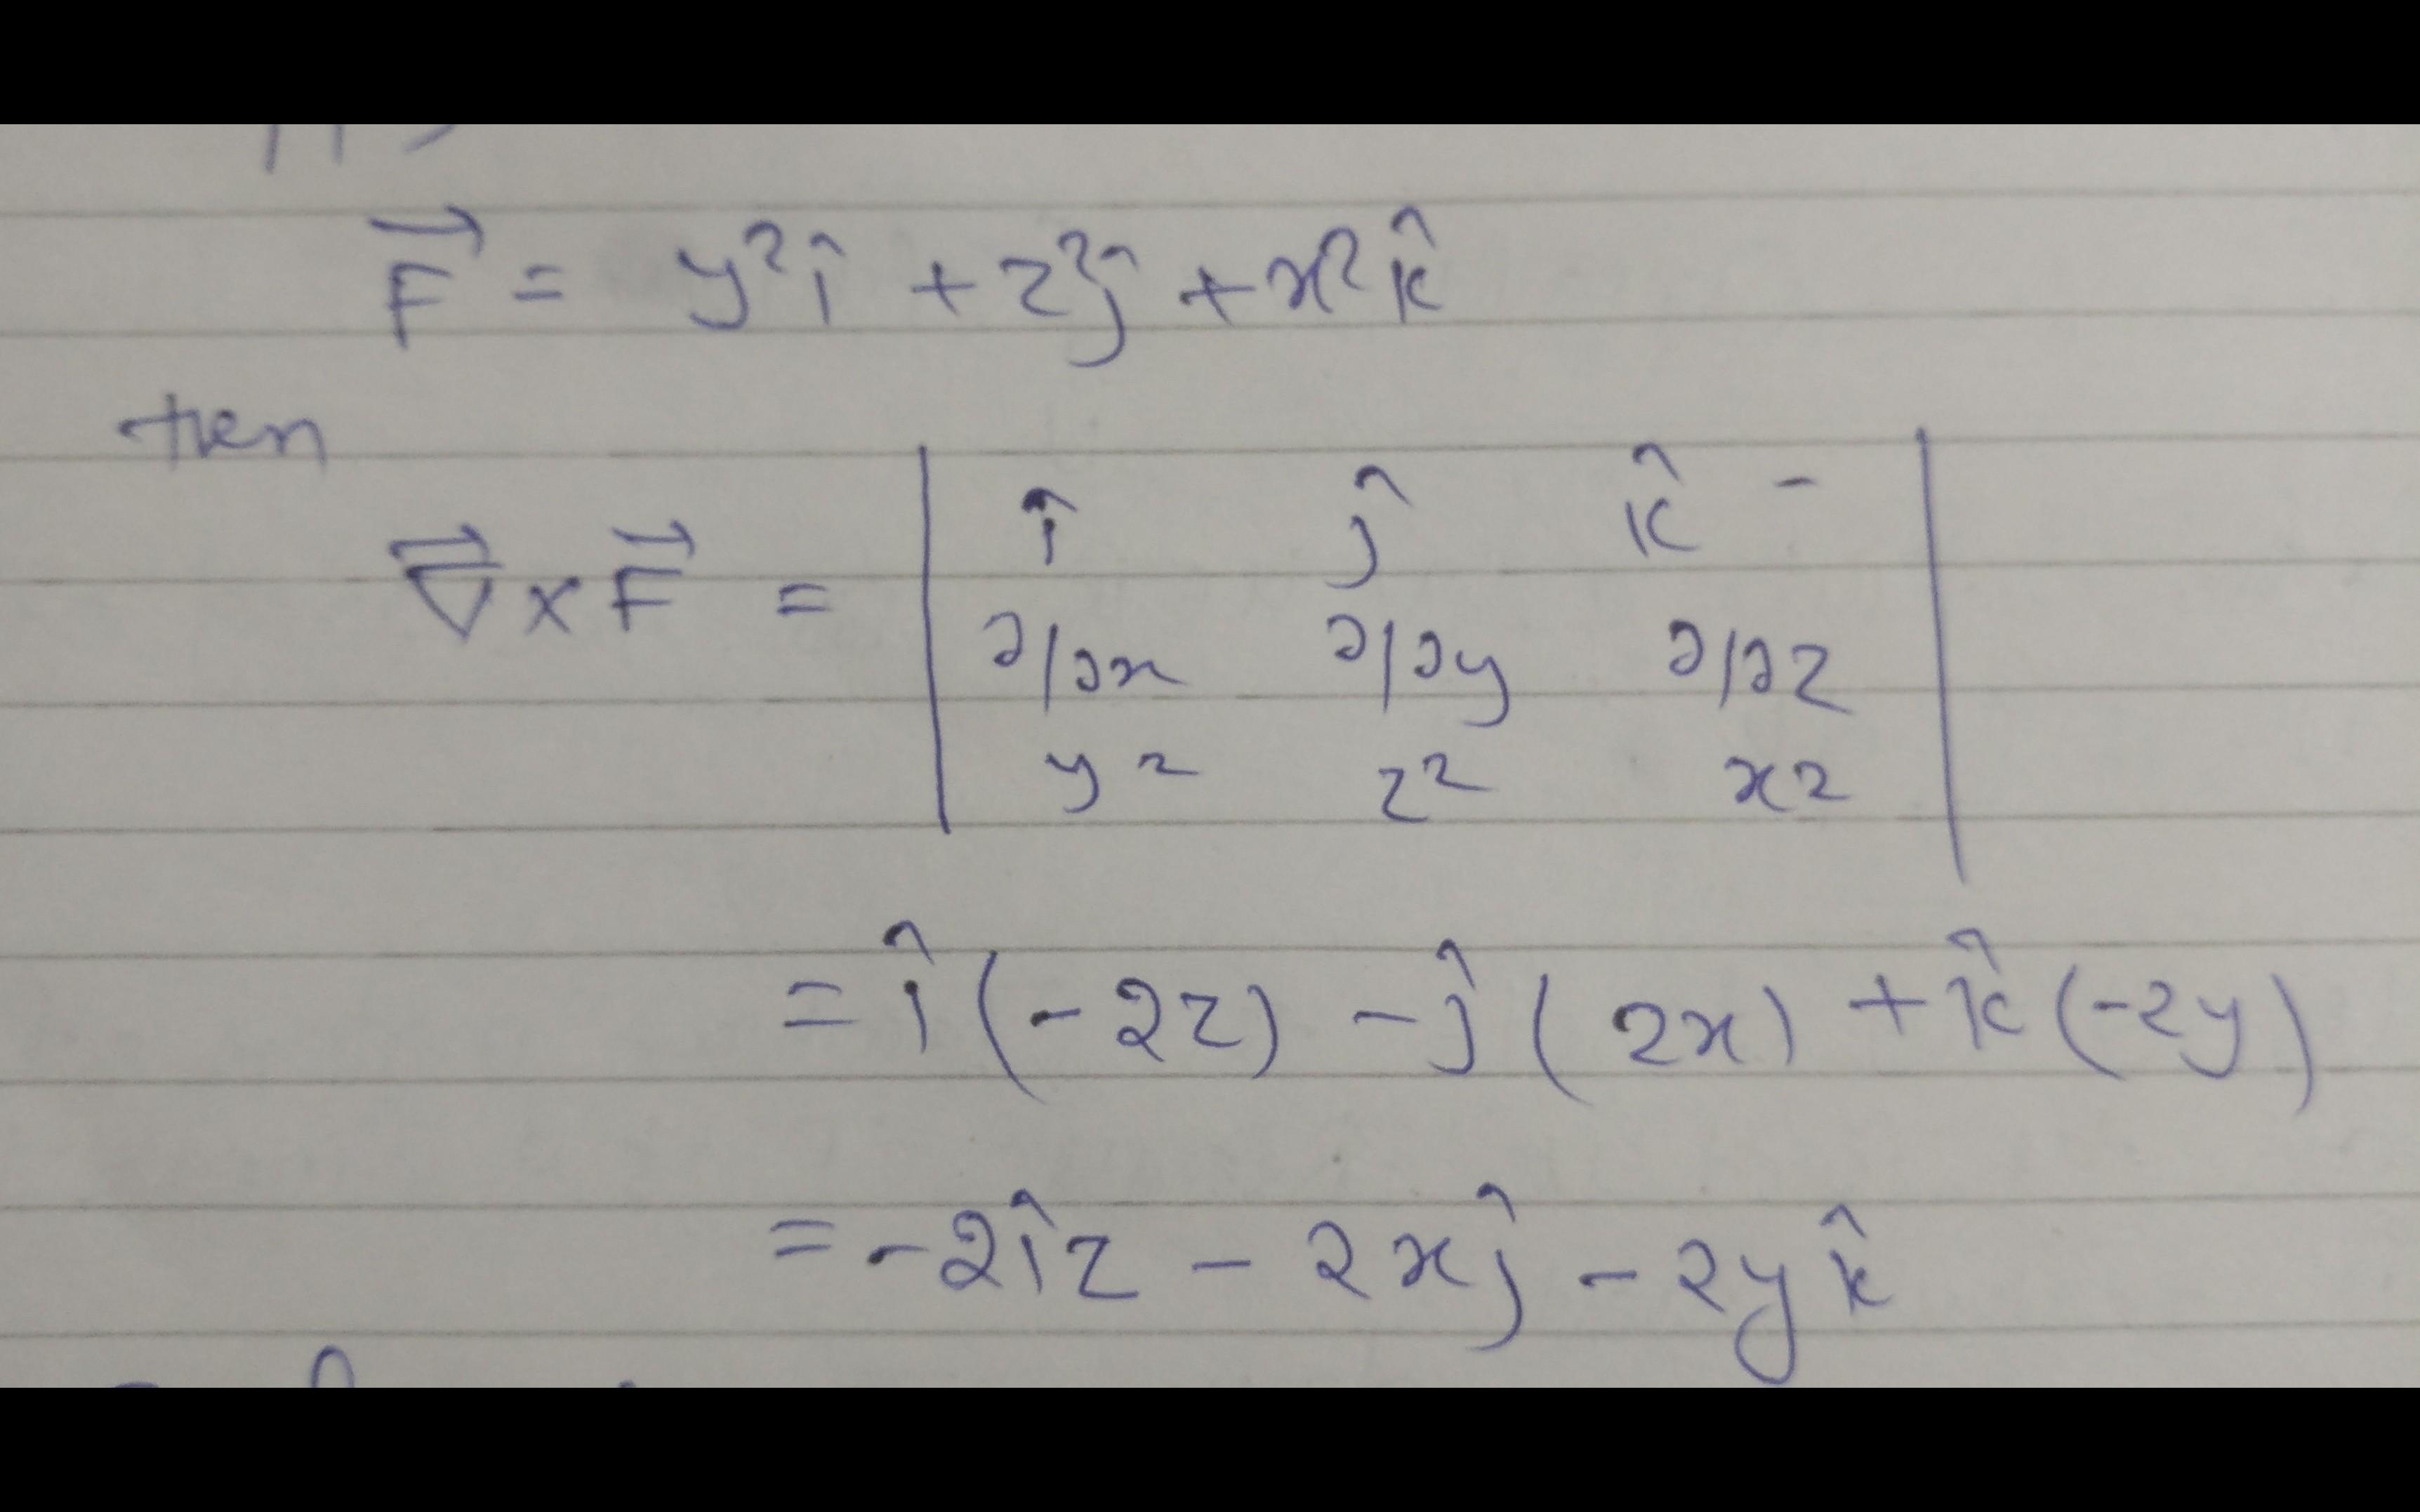 F⃗ = y²î + z²ĵ + x²k̂
then
∇⃗ × F⃗ = | î ĵ k̂ - |
| ∂/∂x ∂/∂y ∂/∂z |
| y² z² x² |
= î(-2z) - ĵ(2x) + k̂(-2y)
= -2îz - 2xĵ - 2yk̂